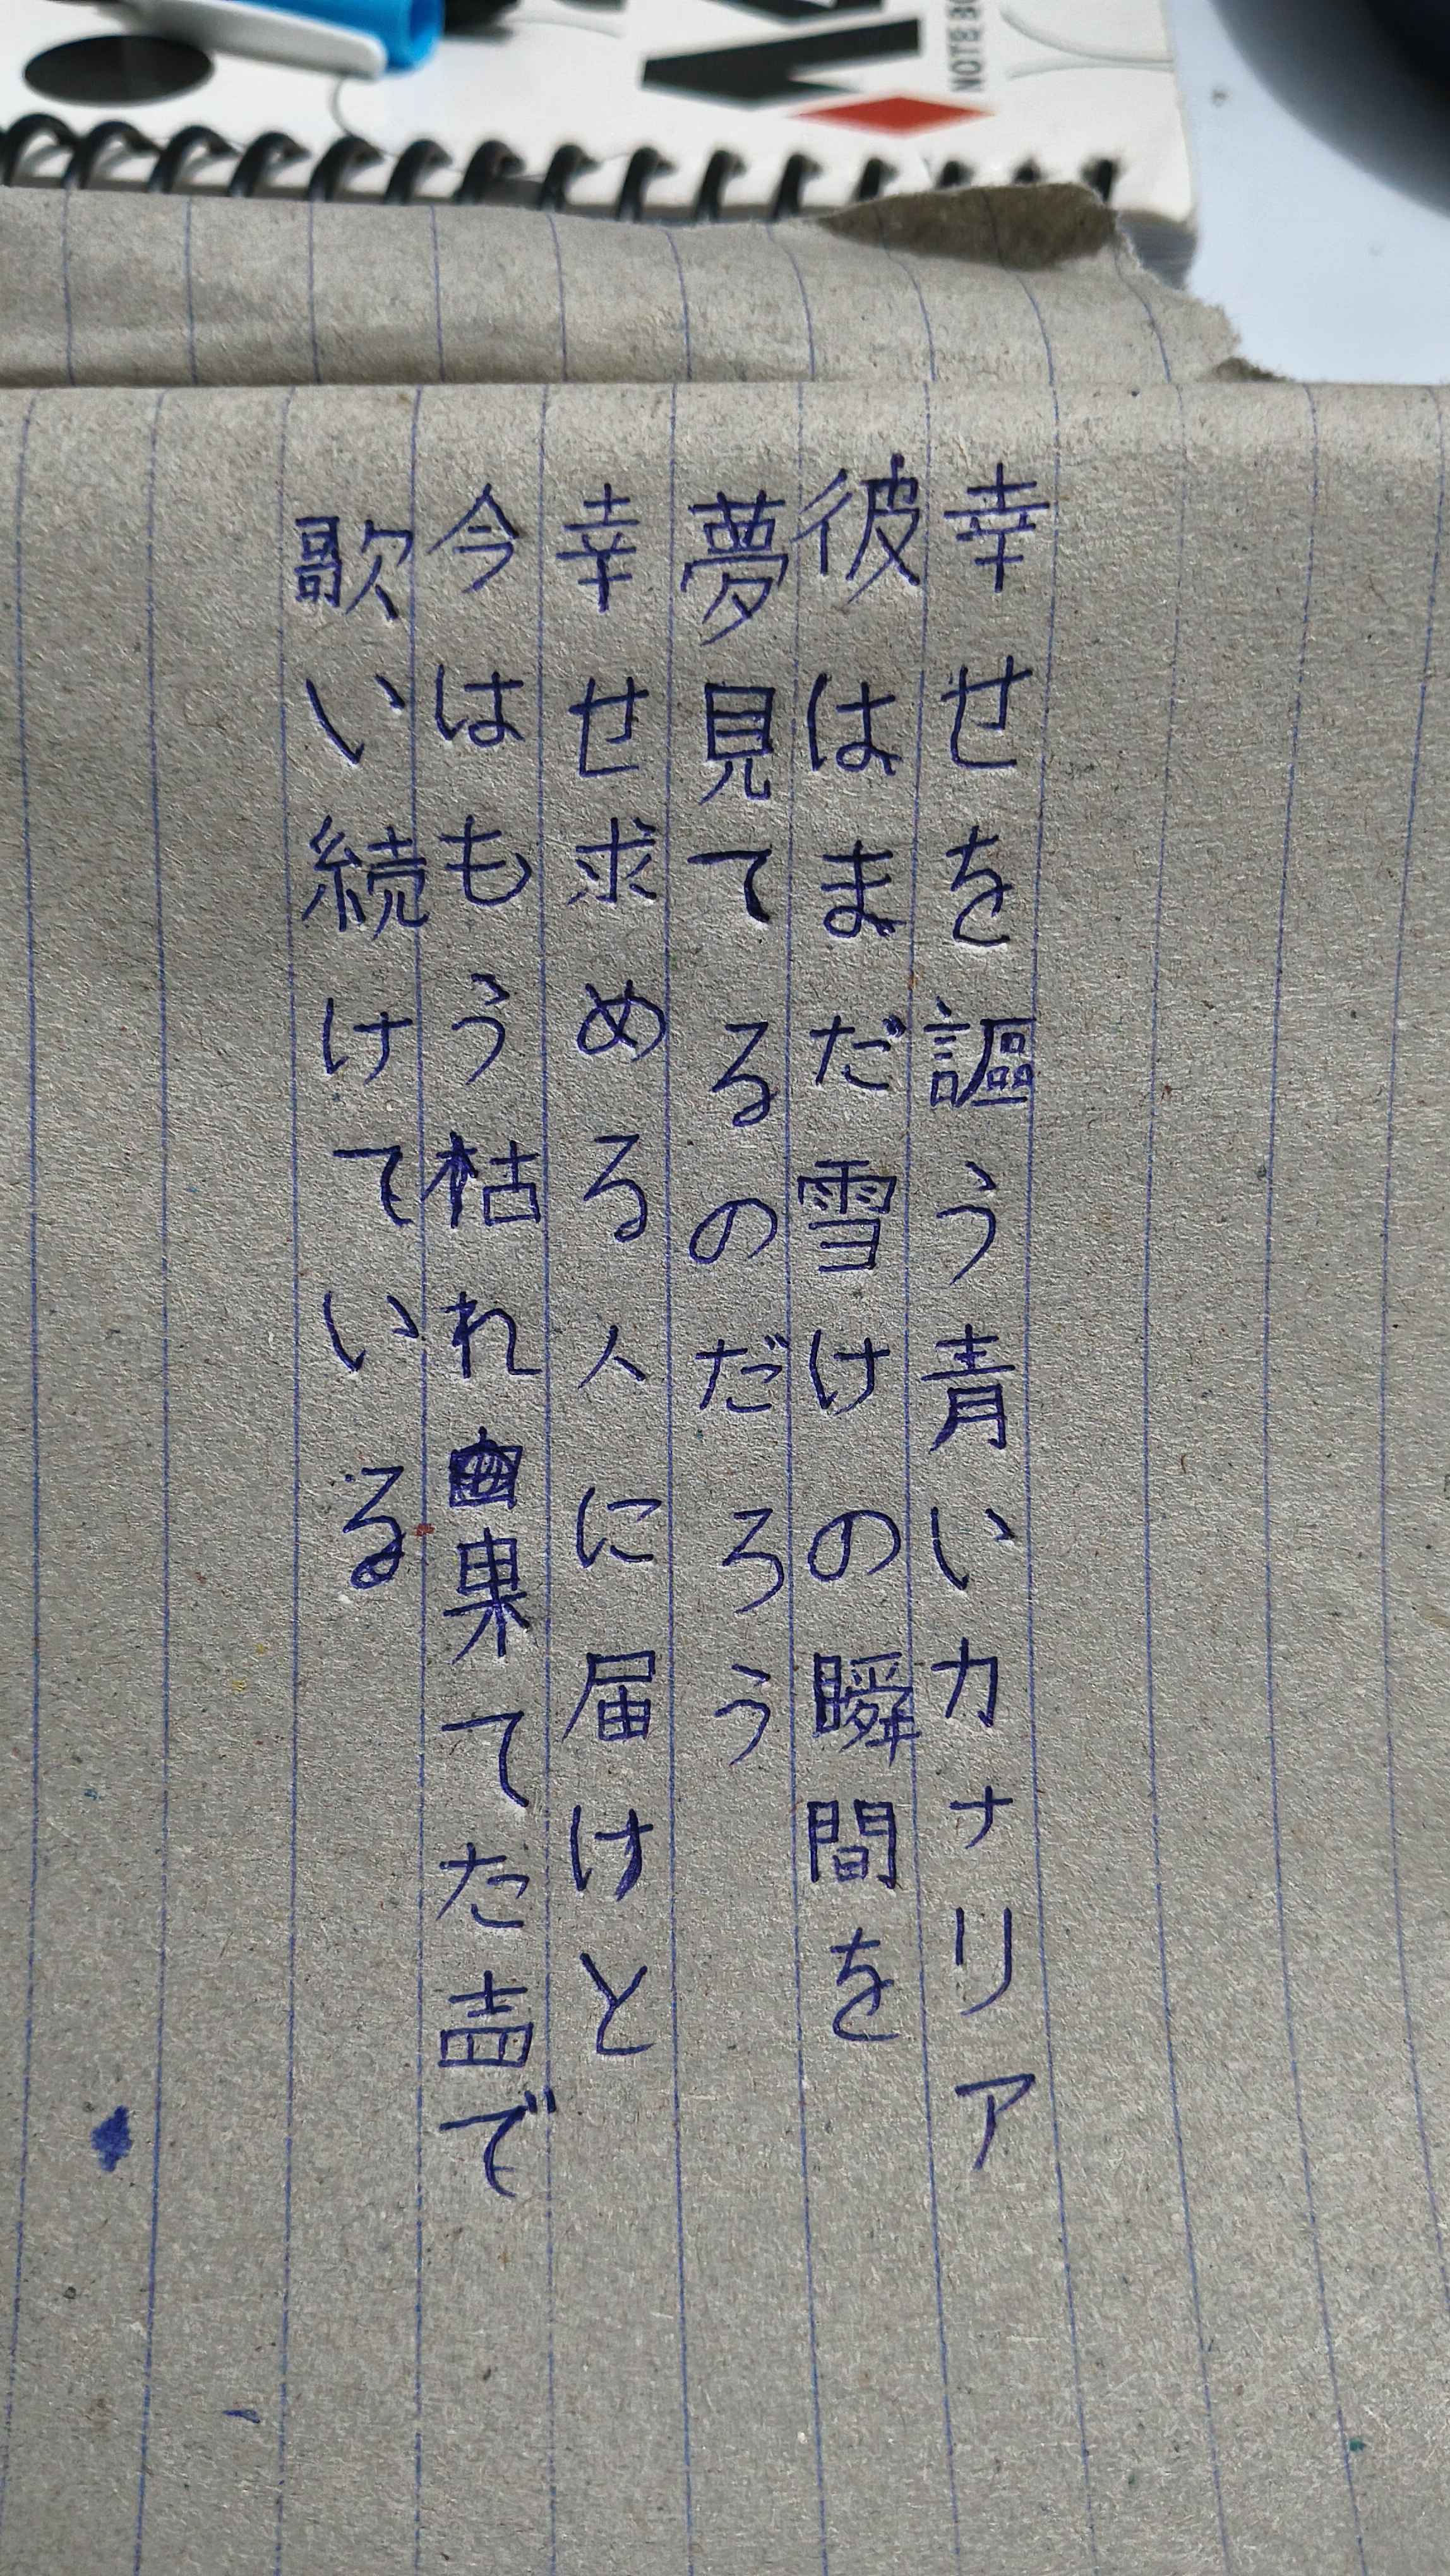 NOTEBO
幸せを謳う青いカナリア
彼はまだ雪けの瞬間を
夢見てるのだろう
幸せ求める人に届けと
今はもう枯れ果てた声で
歌い続けている